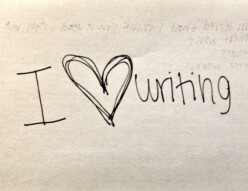 I ♥ writing